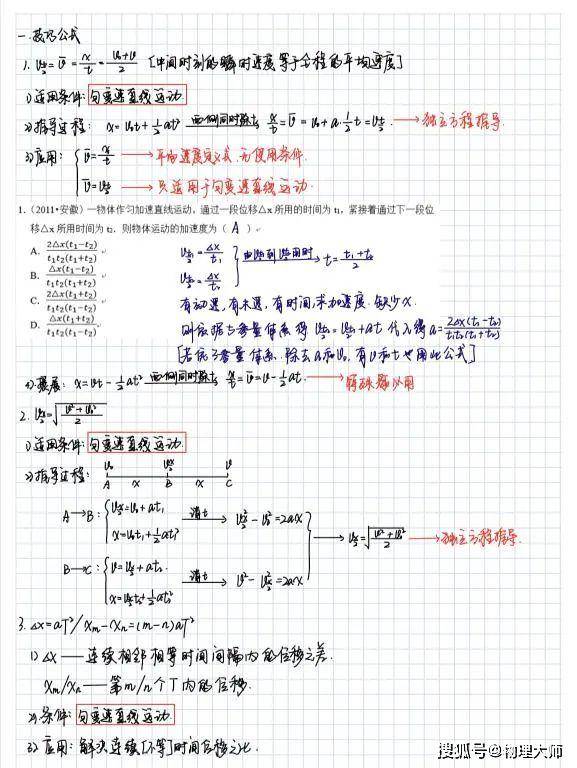 一.技巧公式
1. v_{t/2} = v̄ = x/t = (v₀+v)/2 [中间时刻的瞬时速度等于全程的平均速度]
1)适用条件:匀变速直线运动
2)推导过程: x = v₀t + ½at² 两侧同时除t x/t = v̄ = v₀ + a·½t = v_{t/2}. → 独立方程推导
3)应用: { v̄ = x/t → 平均速度定义式,无使用条件.
v̄ = v_{t/2} → 只适用于匀变速直线运动.
1.(2011•安徽)一物体作匀加速直线运动,通过一段位移△x 所用的时间为 t₁,紧接着通过下一段位
移△x 所用时间为 t₂. 则物体运动的加速度为( A )
A. 2△x(t₁−t₂)/t₁t₂(t₁+t₂)
B. △x(t₁−t₂)/t₁t₂(t₁+t₂)
C. 2△x(t₁+t₂)/t₁t₂(t₁−t₂)
D. △x(t₁+t₂)/t₁t₂(t₁−t₂)
v_{t₁/2} = △x/t₁
v_{t₂/2} = △x/t₂
} 由v_{t₁/2}到v_{t₂/2}用时 → t = (t₁+t₂)/2
有初速,有末速,有时间,求加速度.缺少x.
则依据五参量体系得 v_{t₂/2} = v_{t₁/2} + at 代入得 a = 2△x(t₁−t₂)/t₁t₂(t₁+t₂)
4)拓展: x = vt − ½at² 两侧同时除t x/t = v̄ = v − ½at. → 特殊题以用
2. v_{x/2} = √((v²+v₀²)/2)
1)适用条件:匀变速直线运动.
2)推导过程:
v₀ v_{x/2} v
A x B x C
A→B: { v_{x/2} = v₀ + at₁
x = v₀t₁ + ½at₁² 消t → v_{x/2}² − v₀² = 2ax
B→C: { v = v_{x/2} + at₂
x = v_{x/2}t₂ + ½at₂² 消t → v² − v_{x/2}² = 2ax
→ v_{x/2} = √((v²+v₀²)/2) → 独立方程推导.
3. △x = aT² / x_m − x_n = (m−n)aT²
1) △x —— 连续相邻相等时间间隔内的位移之差.
x_m/x_n —— 第m/n个T内的位移.
2)条件:匀变速直线运动.
3) 应用: 解决连续[不等]时间位移之比.
搜狐号@物理大师